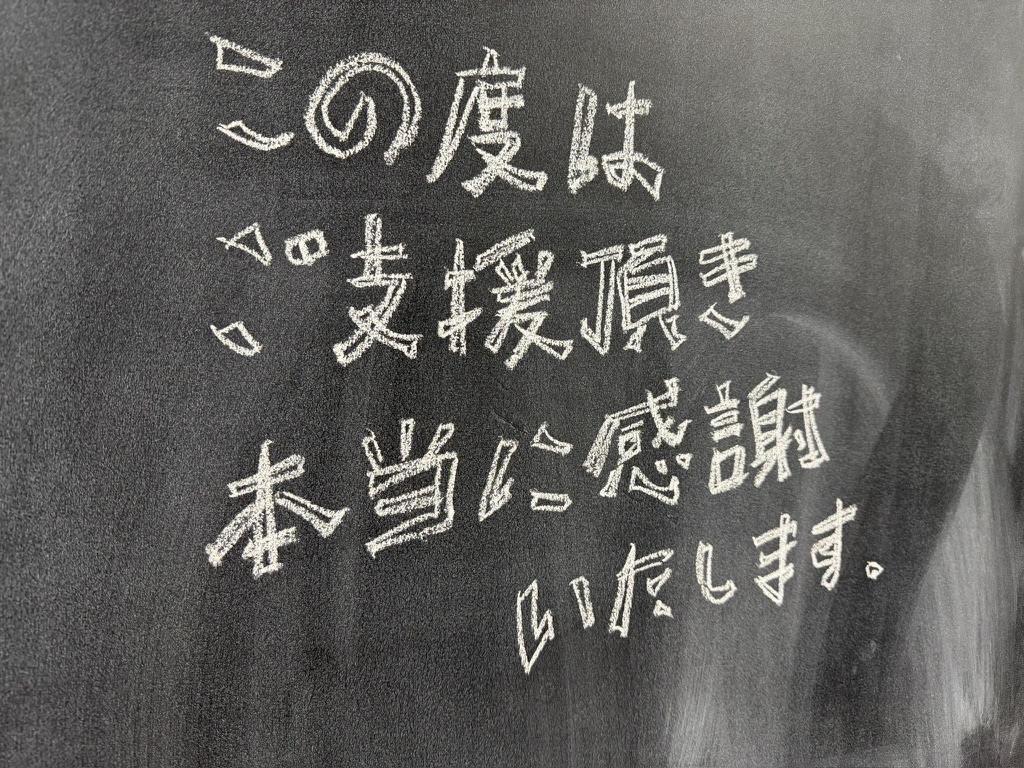 この度は
ご支援頂き
本当に感謝
いたします。